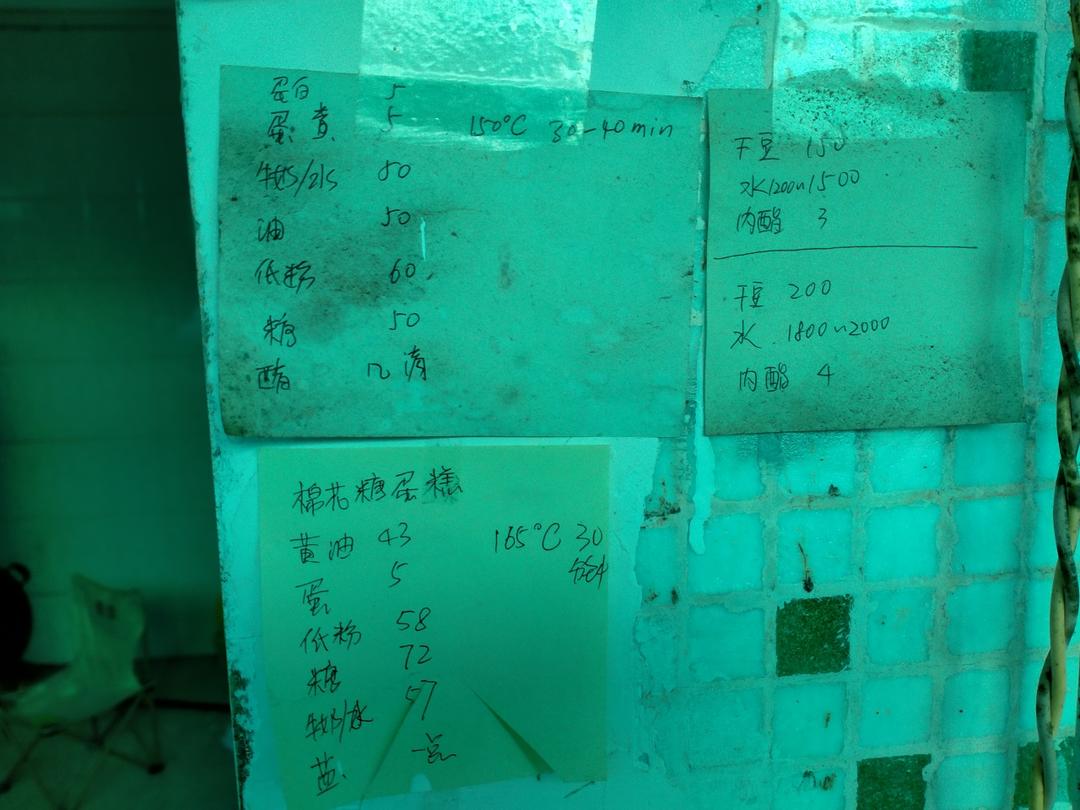 蛋白 5
蛋黄 5 150°C 30-40min
牛奶/水 80
油 50
低粉 60
糖 50
醋 几滴
干豆 150
水1200~1500
内酯 3
干豆 200
水 1800~2000
内酯 4
棉花糖蛋糕
黄油 43 165°C 30
蛋 5
低粉 58
糖 72
牛奶/水 57